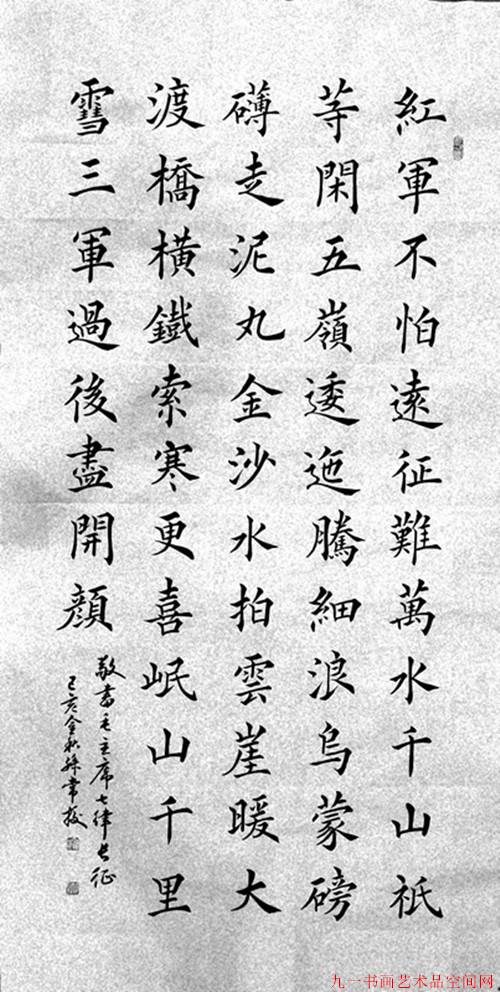 紅軍不怕遠征難萬水千山衹
等閑五嶺逶迤騰細浪烏蒙磅
礴走泥丸金沙水拍雲崖暖大
渡橋橫鐵索寒更喜岷山千里
雪三軍過後盡開顏
敬書毛主席七律長征
己亥金秋
九一书画艺术品空间网